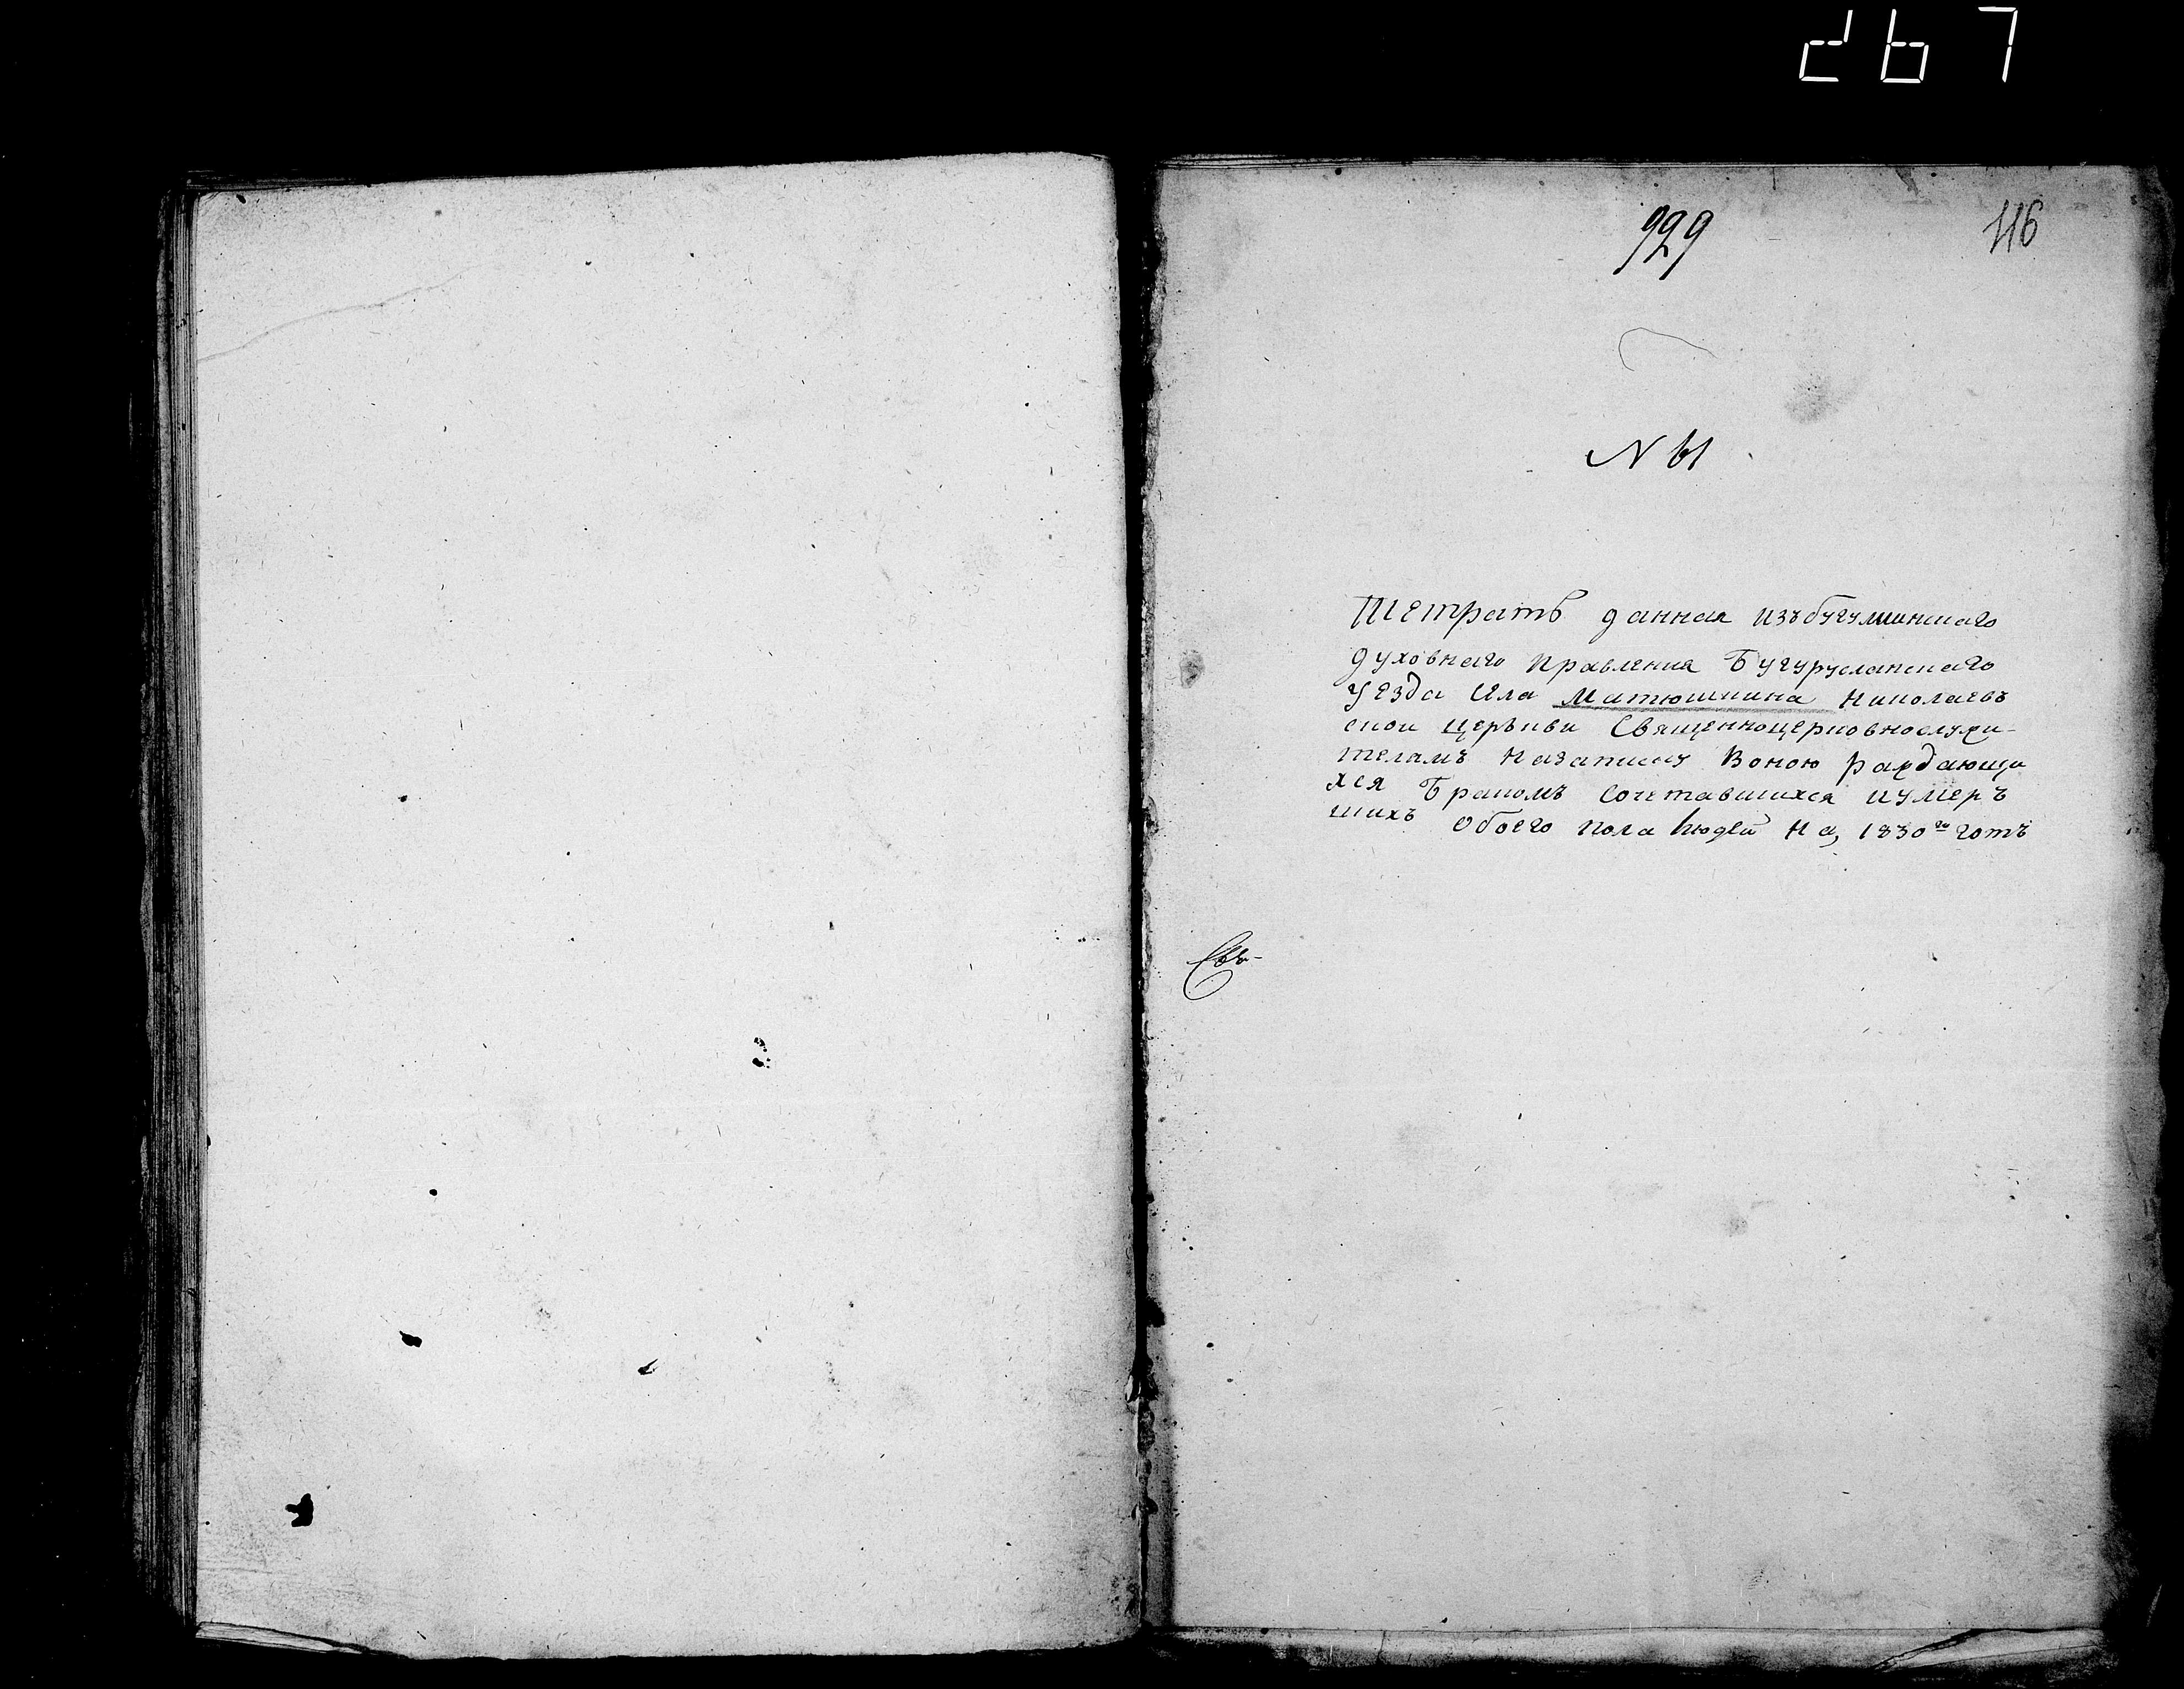 267
929
116
N 61
Тетрать данная изъ бугулминскаго
духовнаго правления Бугурусланскаго
уезда Села Матюшкина Николаевъ
ской церькви Священноцерковнослужи-
телямъ назаписку Воною раждающи
хся Бракомъ Сочетавшихся иумеръ
шихъ Обоего пола людей На 1830й готъ